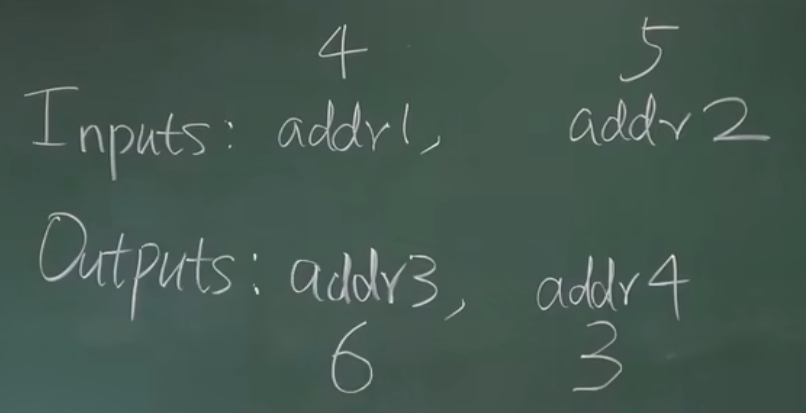 4 5
Inputs: addr1, addr2
Outputs: addr3, addr4
6 3